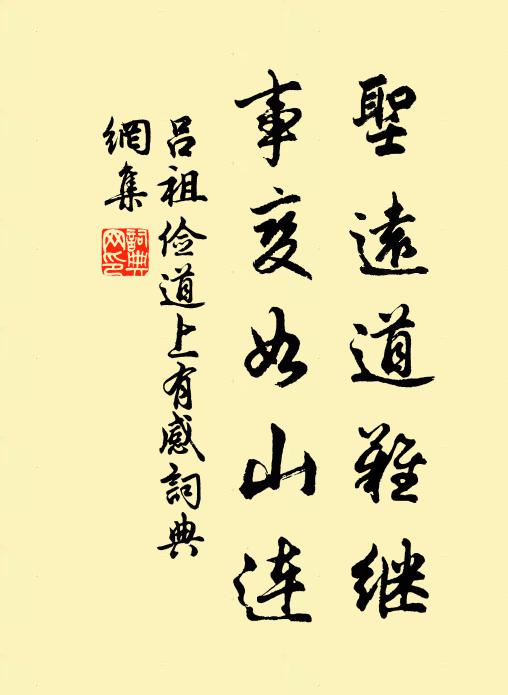 聖遠道難继
事变如山連
吕祖俭道上有感詞典
網集
詞典網印